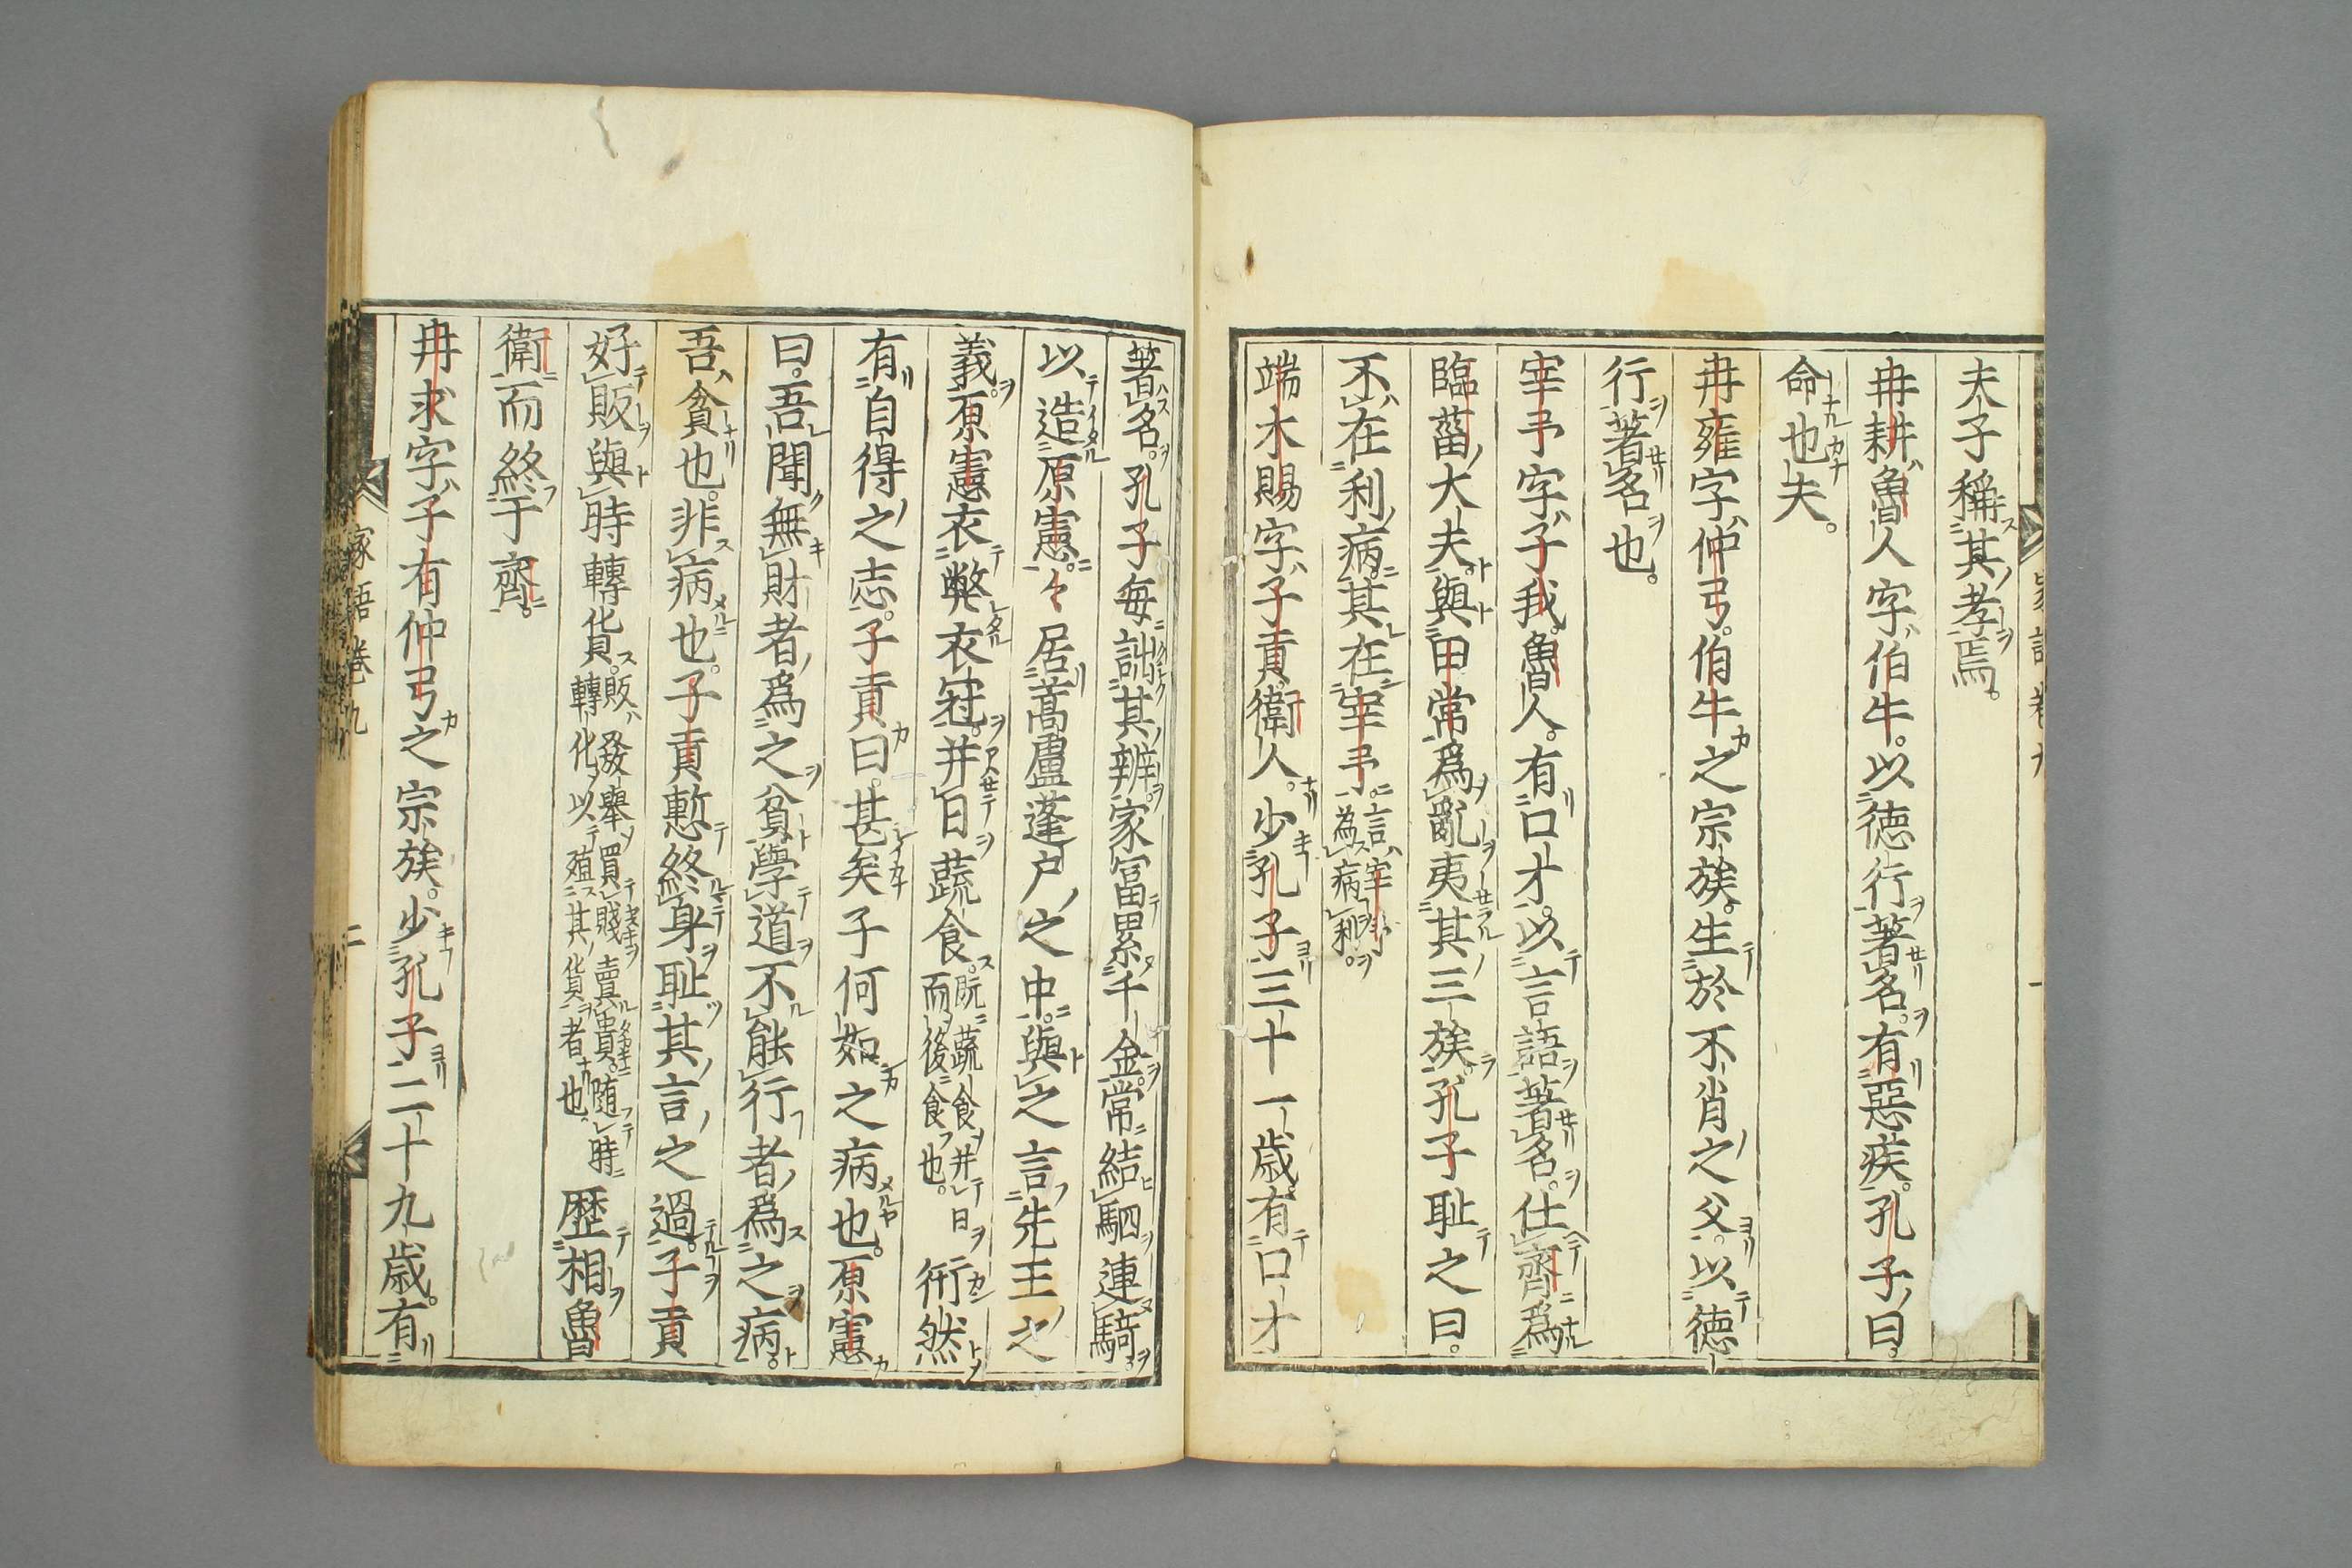 夫子稱其孝焉。
冉耕魯人字伯牛。以德行著名。有惡疾。孔子曰。
命也夫。
冉雍字仲弓。伯牛之宗族。生於不肖之父。以德
行著名也。
宰予字子我。魯人。有口才。以言語著名。仕齊爲
臨菑大夫。與田常爲亂夷其三族。孔子耻之曰。
不在利病。其在宰予。言宰予為病利。
端木賜字子貢。衛人。少孔子三十一歳。有口才
著名。孔子毎詘其辨。家冨累千金。常結駟連騎
以造原憲。々居蒿廬蓬户之中。與之言先王之
義。原憲衣弊衣冠。并日蔬食。既蔬食并日而後食也。衎然
有自得之志。子貢曰。甚矣子何如之病也。原憲
曰。吾聞無財者爲之貧。學道不能行者爲之病。
吾貧也。非病也。子貢慙終身耻其言之過。子貢
好販與時轉貨。販發舉買賤賣貴。随時轉化以殖其貨者也。歴相魯
衛而終于齊。
冉求字子有。仲弓之宗族。少孔子二十九歳。有
家語卷九
二